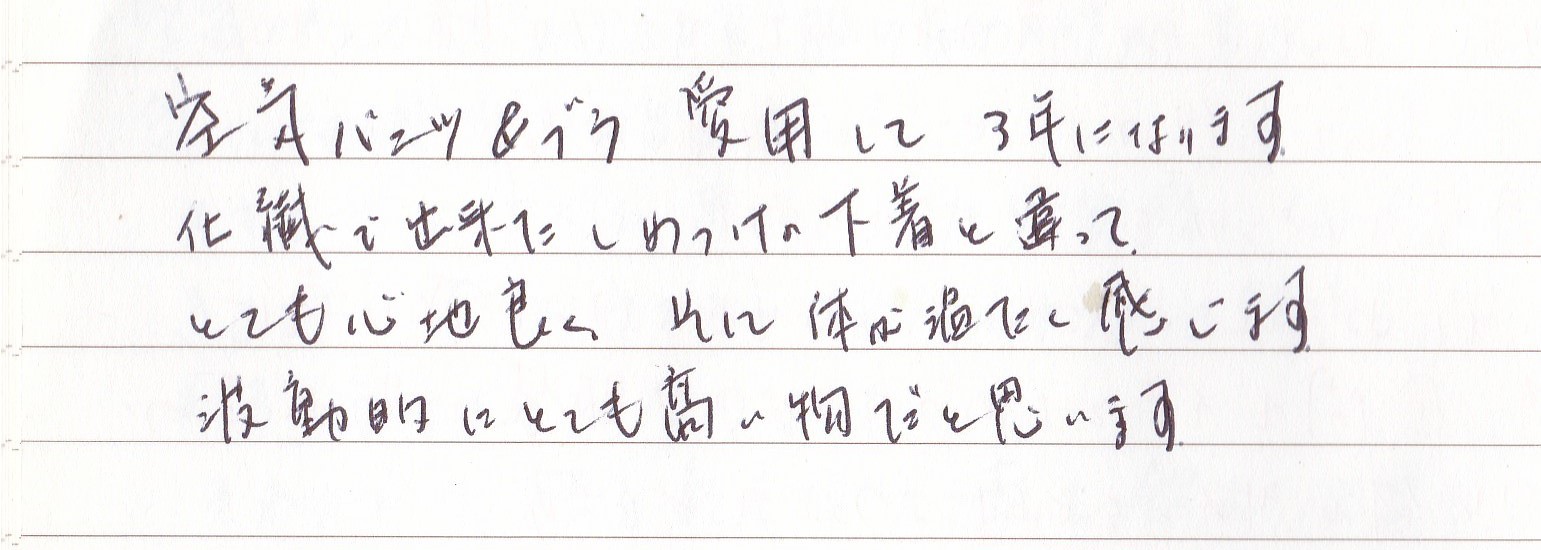 空気パンツ&ブラ 愛用して 3年になります
化繊で出来たしめつけの下着と違って
とても心地良く 体が温たく感じます
波動的にとても高い物だと思います